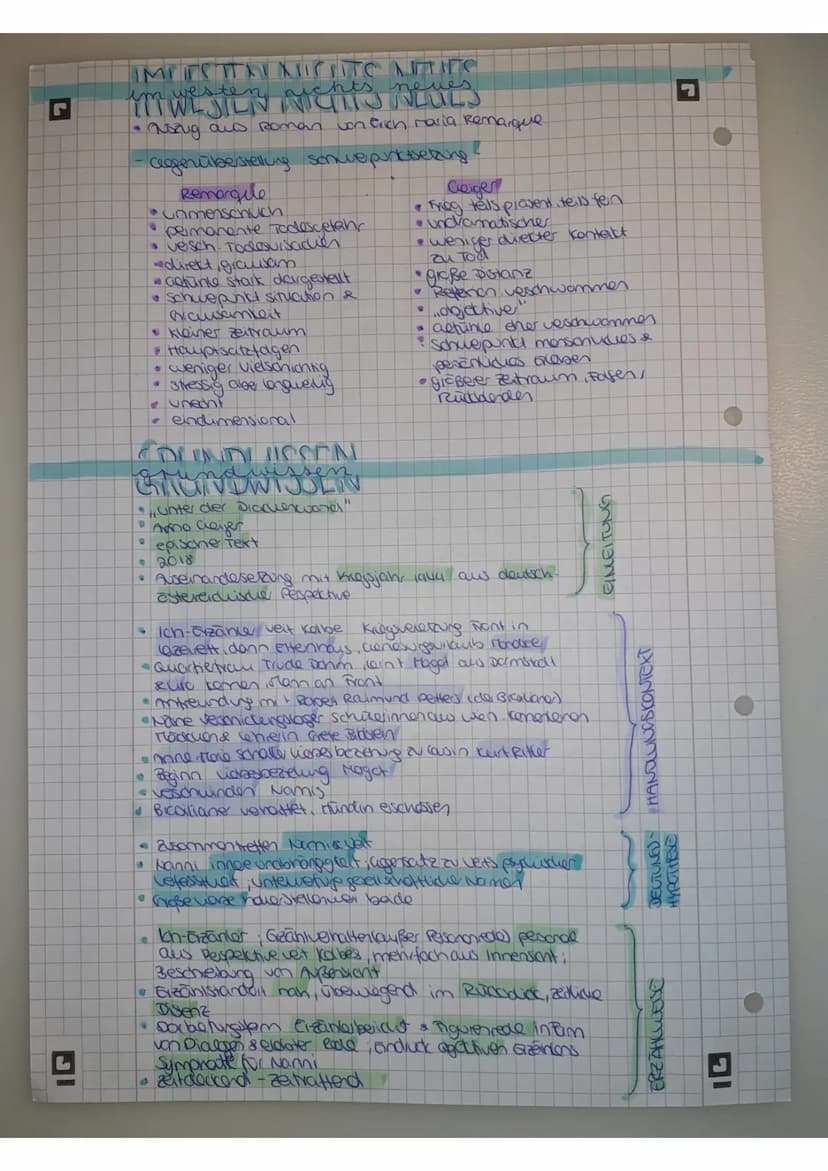 im westen nichts neues
• Auszug aus Roman von Erich Maria Remarque
- Gegenüberstellung schwerpunktsetzung!
Remarque
• unmenschlich
• permanente Todesgefahr
• versch. Todesursachen
• direkt, grausam
• Gefühle stark dargestellt
• Schwerpunkt situation &
Grausamkeit
• kleiner Zeitraum
• Hauptsatzfolgen
• weniger vielschichtig
• stressig aber langweilig
• unecht
• eindimensional
Geiger
• Krieg teils präsent, teils fern
• undramatischer
• weniger direkter Kontakt
zu Tod
• große Distanz
• verschwommen
• „objektive"
• Gefühle eher verschwommen
• schwerpunkt menschliches &
persönliches Erleben
• größerer Zeitraum, Fasen,
Rückblenden
grundwissen
• „Unter der Drachenwand"
• Arno Geiger
• epischer Text
• 2018
• Auseinandersetzung mit Kriegsjahr 1944 aus deutsch-
österreichischer Perspektive
EINLEITUNG
• Ich-Erzähler veit Kolbe Kriegsverletzung Front in
Lazarett, dann Elternhaus, Genesungsurlaub Mondsee
• Quartierfrau Trude Dohm, lernt Margot aus Darmstadt
& Lilo kennen, Mann an Front
• Anfreundung mit Robert Raimund Perttes (der Brasilianer)
• Nähe Schülerinnen aus wien kennenlernen
Mädchen & Lehrerin Grete Bildstein
• Anne-Marie Schaller, Liebesbeziehung zu Cousin Kurt Ritler
• Beginn Liebesbeziehung Margot
• verschwinden Nannis
• Brasilianer verhaftet, Hündin erschossen
HANDLUNGSKONTEXT
• Zusammentreffen Nanni & Veit
• Nanni innere unabhängigkeit; Gegensatz zu Veits psychischer
Verfasstheit, unterwerfung gesellschaftliche Normen
• Größe beide
DEUTUNGS-
HYPOTHESE
• Ich-Erzähler; Erzählverhalten (außer Personenrede) personal
aus Perspektive veit Kolbes, mehrfach aus Innensicht;
Beschreibung von Außensicht
• Erzählstandort nah, überwiegend im Rückblick, zeitliche
Distanz
• Darbietungsform Erzählerbericht & Figurenrede in Form
von Dialogen & erlebter Rede; eindruck objektiven Erzählens
Sympathie für Nanni
• zeitdeckend - zeitraffend
ERZÄHLWEISE